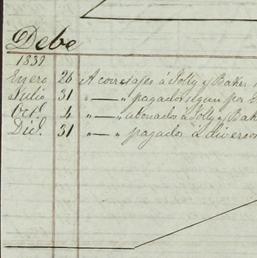 Debe
1839
Enero 26 A corretages á Jolly y Baker
Julio 31 " — " pagados segun por
Oct. 4 " — " abonados á Jolly y Bak
Dic. 31 " — " pagados á diversos